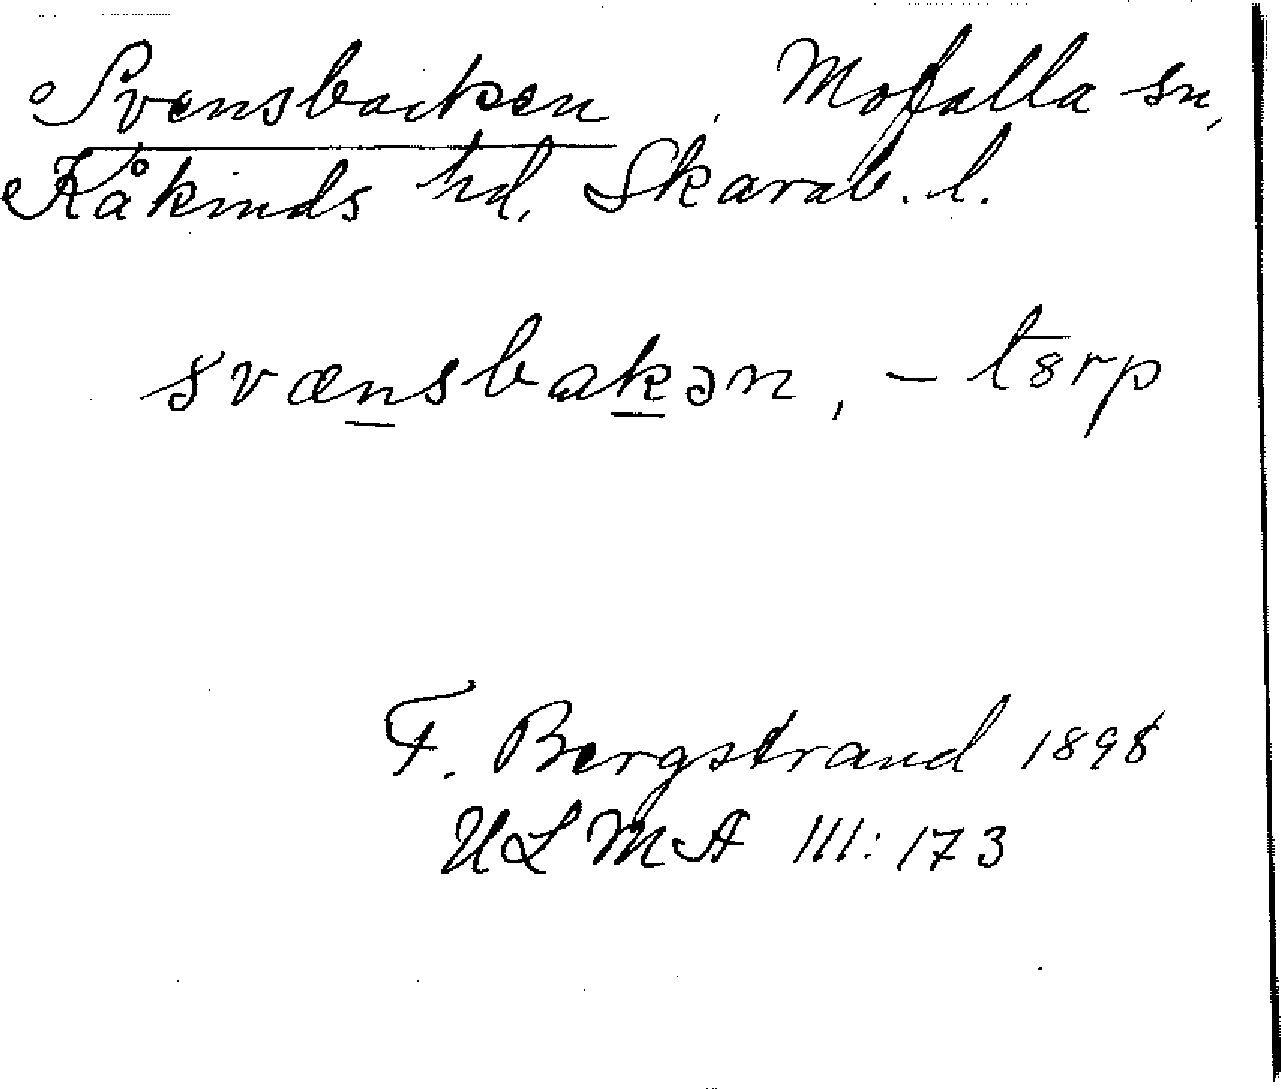 Svensbacken, Mofalla sn,
Kåkinds hd, Skarab. l.
svænsbakən, – tɞrp
F. Bergstrand 1898
ULMA III: 173